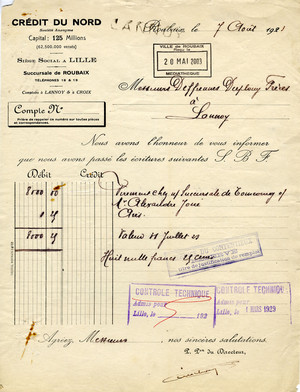 CRÉDIT DU NORD
Société Anonyme
Capital: 125 Millions
(62,500,000 versés)
SIÈGE SOCIAL A LILLE
Succursale de ROUBAIX
TÉLÉPHONES 16 & 19
Comptoirs à LANNOY & à CROIX
Compte N°
Prière de rappeler ce numéro sur toutes pièces et correspondances.
Roubaix, le 7 Août 1921
VILLE de ROUBAIX
20 MAI 2003
MEDIATHEQUE
Messieurs Deffrennes Duplouy Frères
à
Lannoy
Nous avons l'honneur de vous informer
que nous avons passé les écritures suivantes S. B. F.
Débit Crédit
Succursale de Tourcoing
Alexandre
Valeur Juillet
Huit mille francs
CONTROLE TECHNIQUE
Admis pour
Lille, le
CONTROLE TECHNIQUE
Lille, le
Agréez, Messieurs nos sincères salutations.